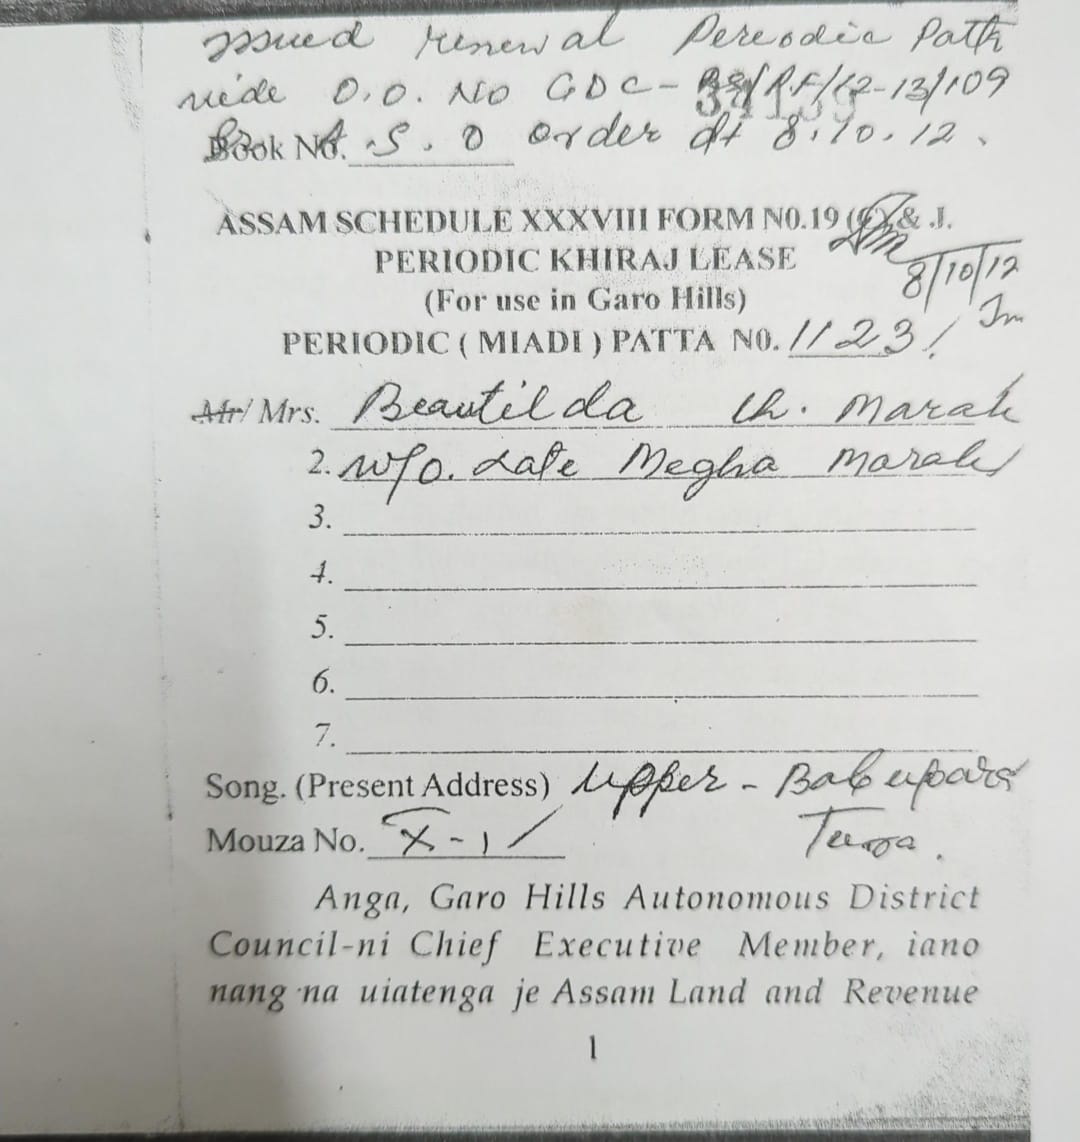 issued renewal Periodic Patta
vide O.O. No GDC- R.F/12-13/109
Book No. A.S.O order dt 8.10.12.
ASSAM SCHEDULE XXXVIII FORM N0.19 & J.
PERIODIC KHIRAJ LEASE
8/10/12
(For use in Garo Hills)
PERIODIC ( MIADI ) PATTA N0. 1123/
Mr/ Mrs. Beautilda Ch. Marak
2. w/o. Late Megha Marak
3.
4.
5.
6.
7.
Song. (Present Address) Upper - Babupara
Mouza No. X-1/ Tura.
Anga, Garo Hills Autonomous District
Council-ni Chief Executive Member, iano
nang na uiatenga je Assam Land and Revenue
1